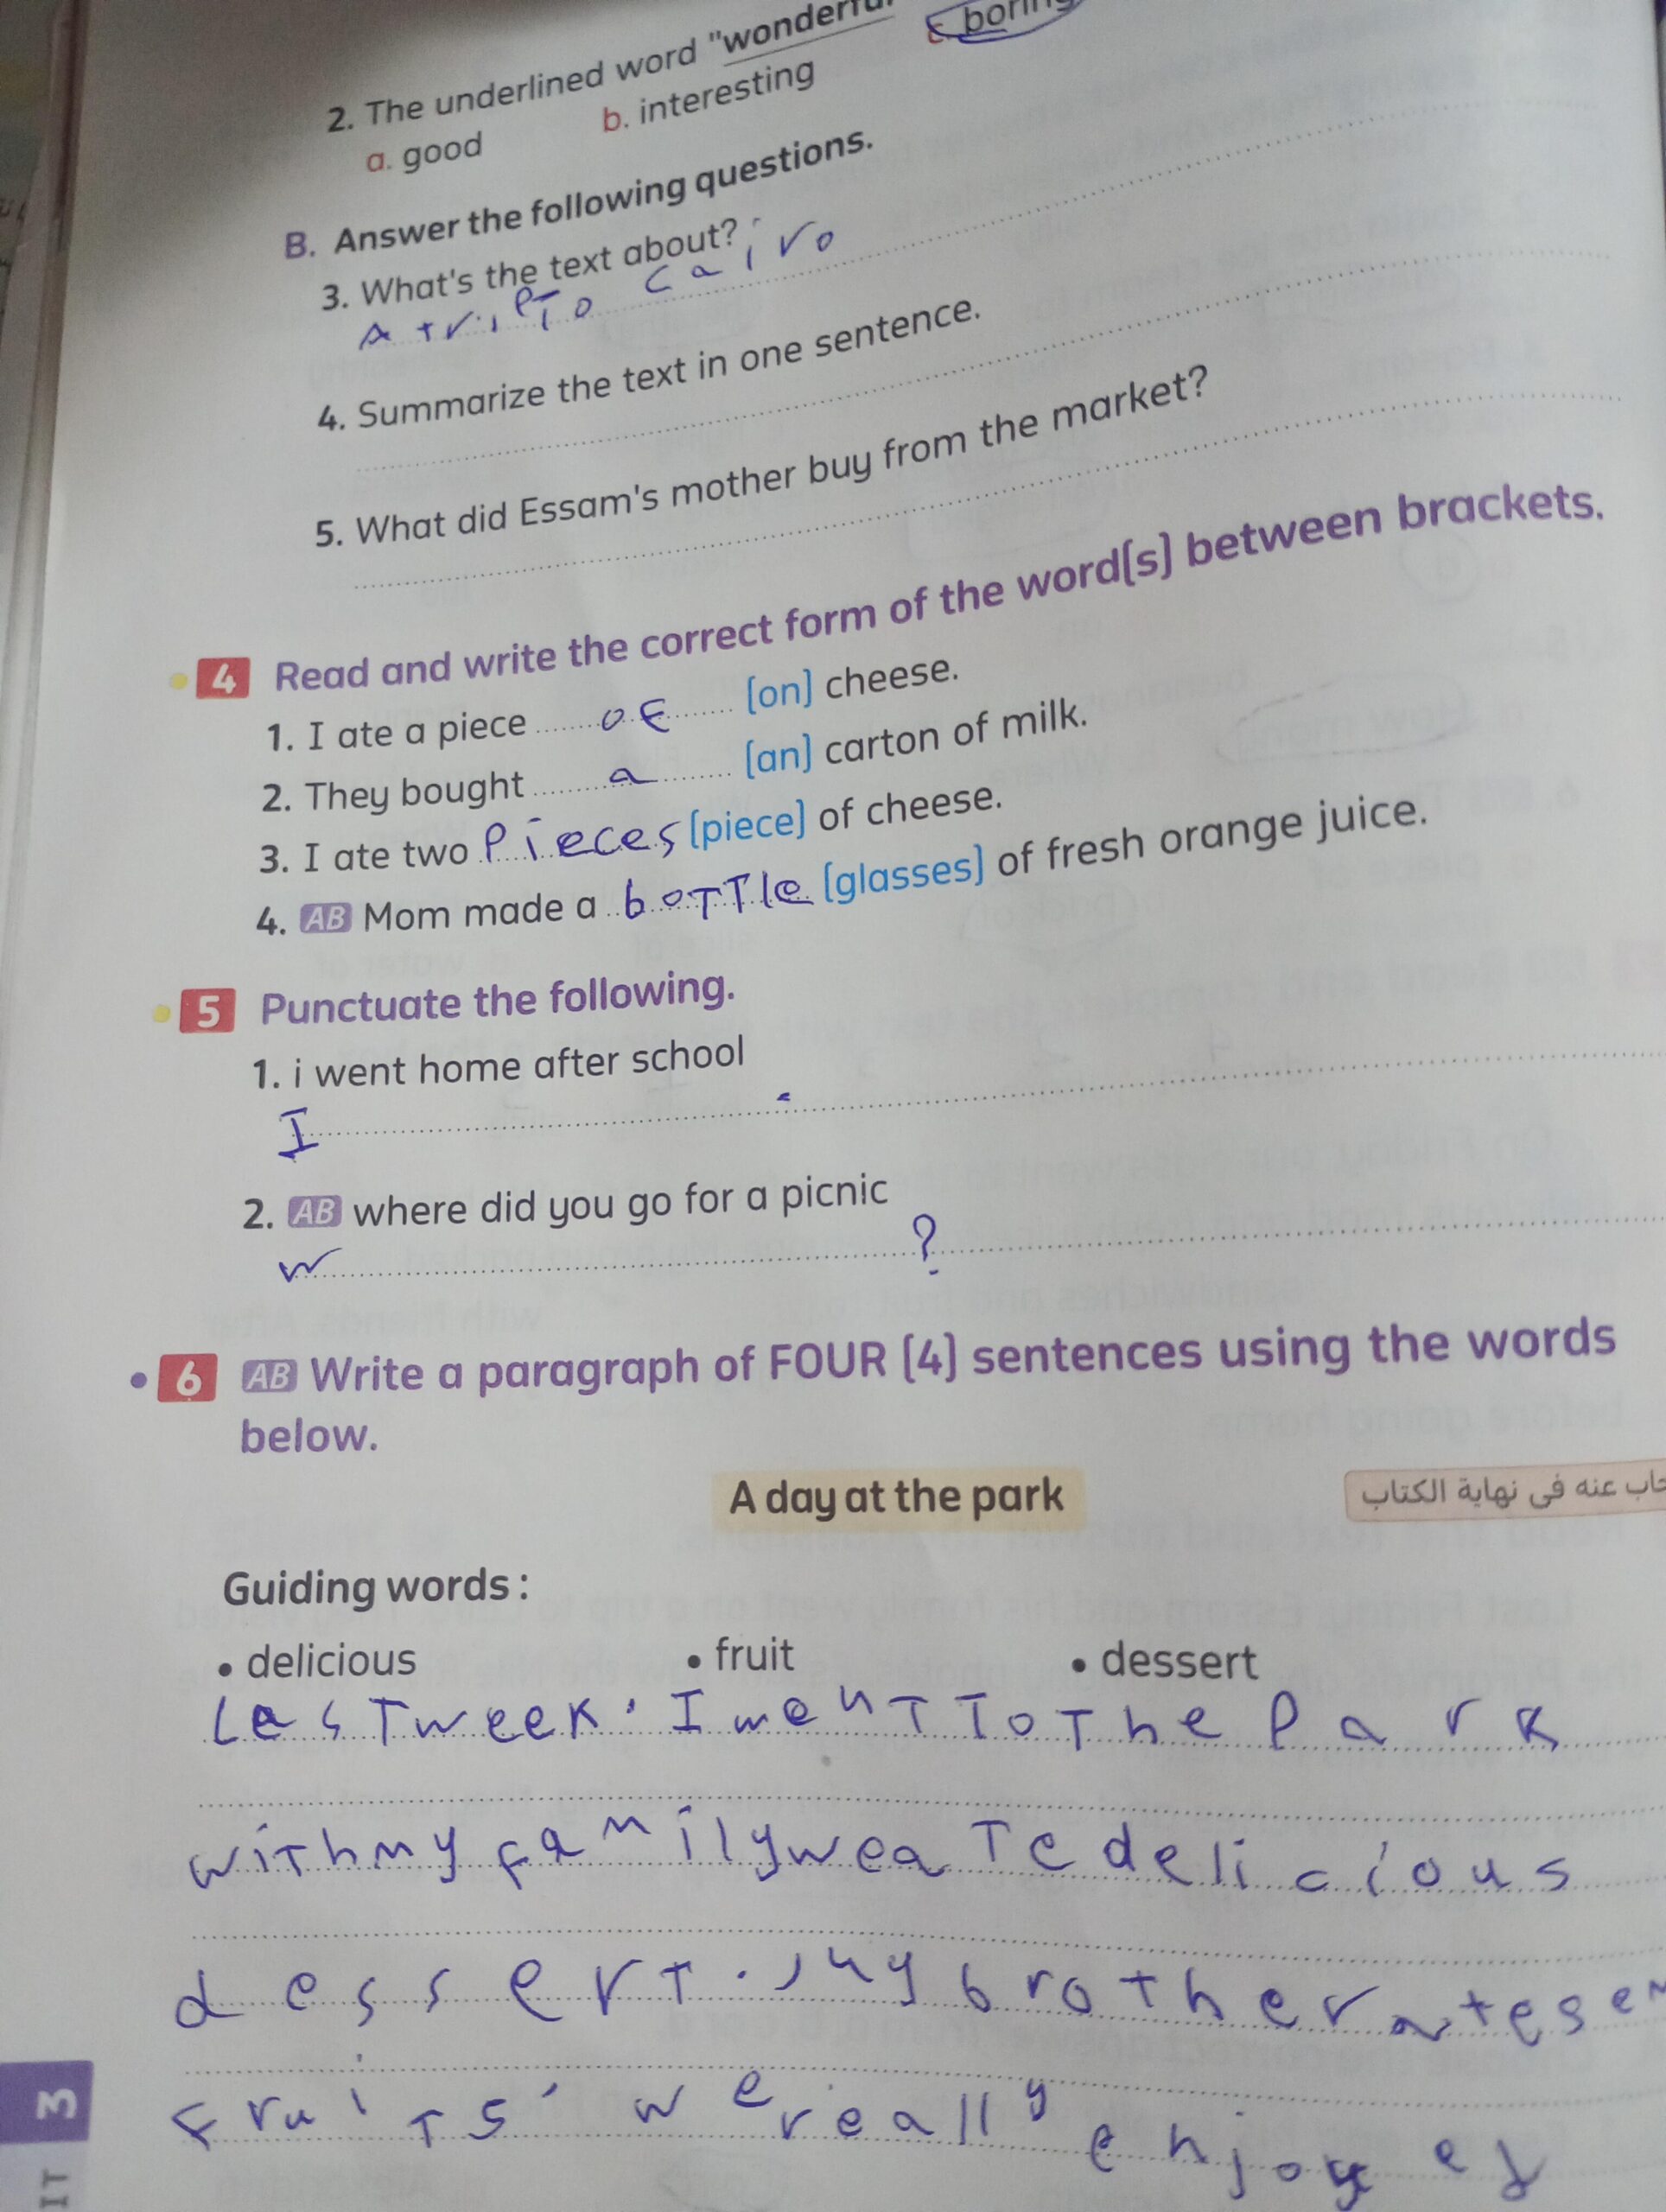 2. The underlined word "wonderful
a. good b. interesting c. boring
B. Answer the following questions.
3. What's the text about?
A trip To cairo
4. Summarize the text in one sentence.
5. What did Essam's mother buy from the market?
4 Read and write the correct form of the word(s) between brackets.
1. I ate a piece of (on) cheese.
2. They bought a (an) carton of milk.
3. I ate two Pieces (piece) of cheese.
4. AB Mom made a boTTle (glasses) of fresh orange juice.
5 Punctuate the following.
1. i went home after school
I .
2. AB where did you go for a picnic
W ?
6 AB Write a paragraph of FOUR (4) sentences using the words
below.
A day at the park
جاب عنه فى نهاية الكتاب
Guiding words :
• delicious • fruit • dessert
LasT week. I wenT To The Park
wiTh my family we aTe delicious
desserT. my brother ate
fruiTs. we really enjoyed
3
IT